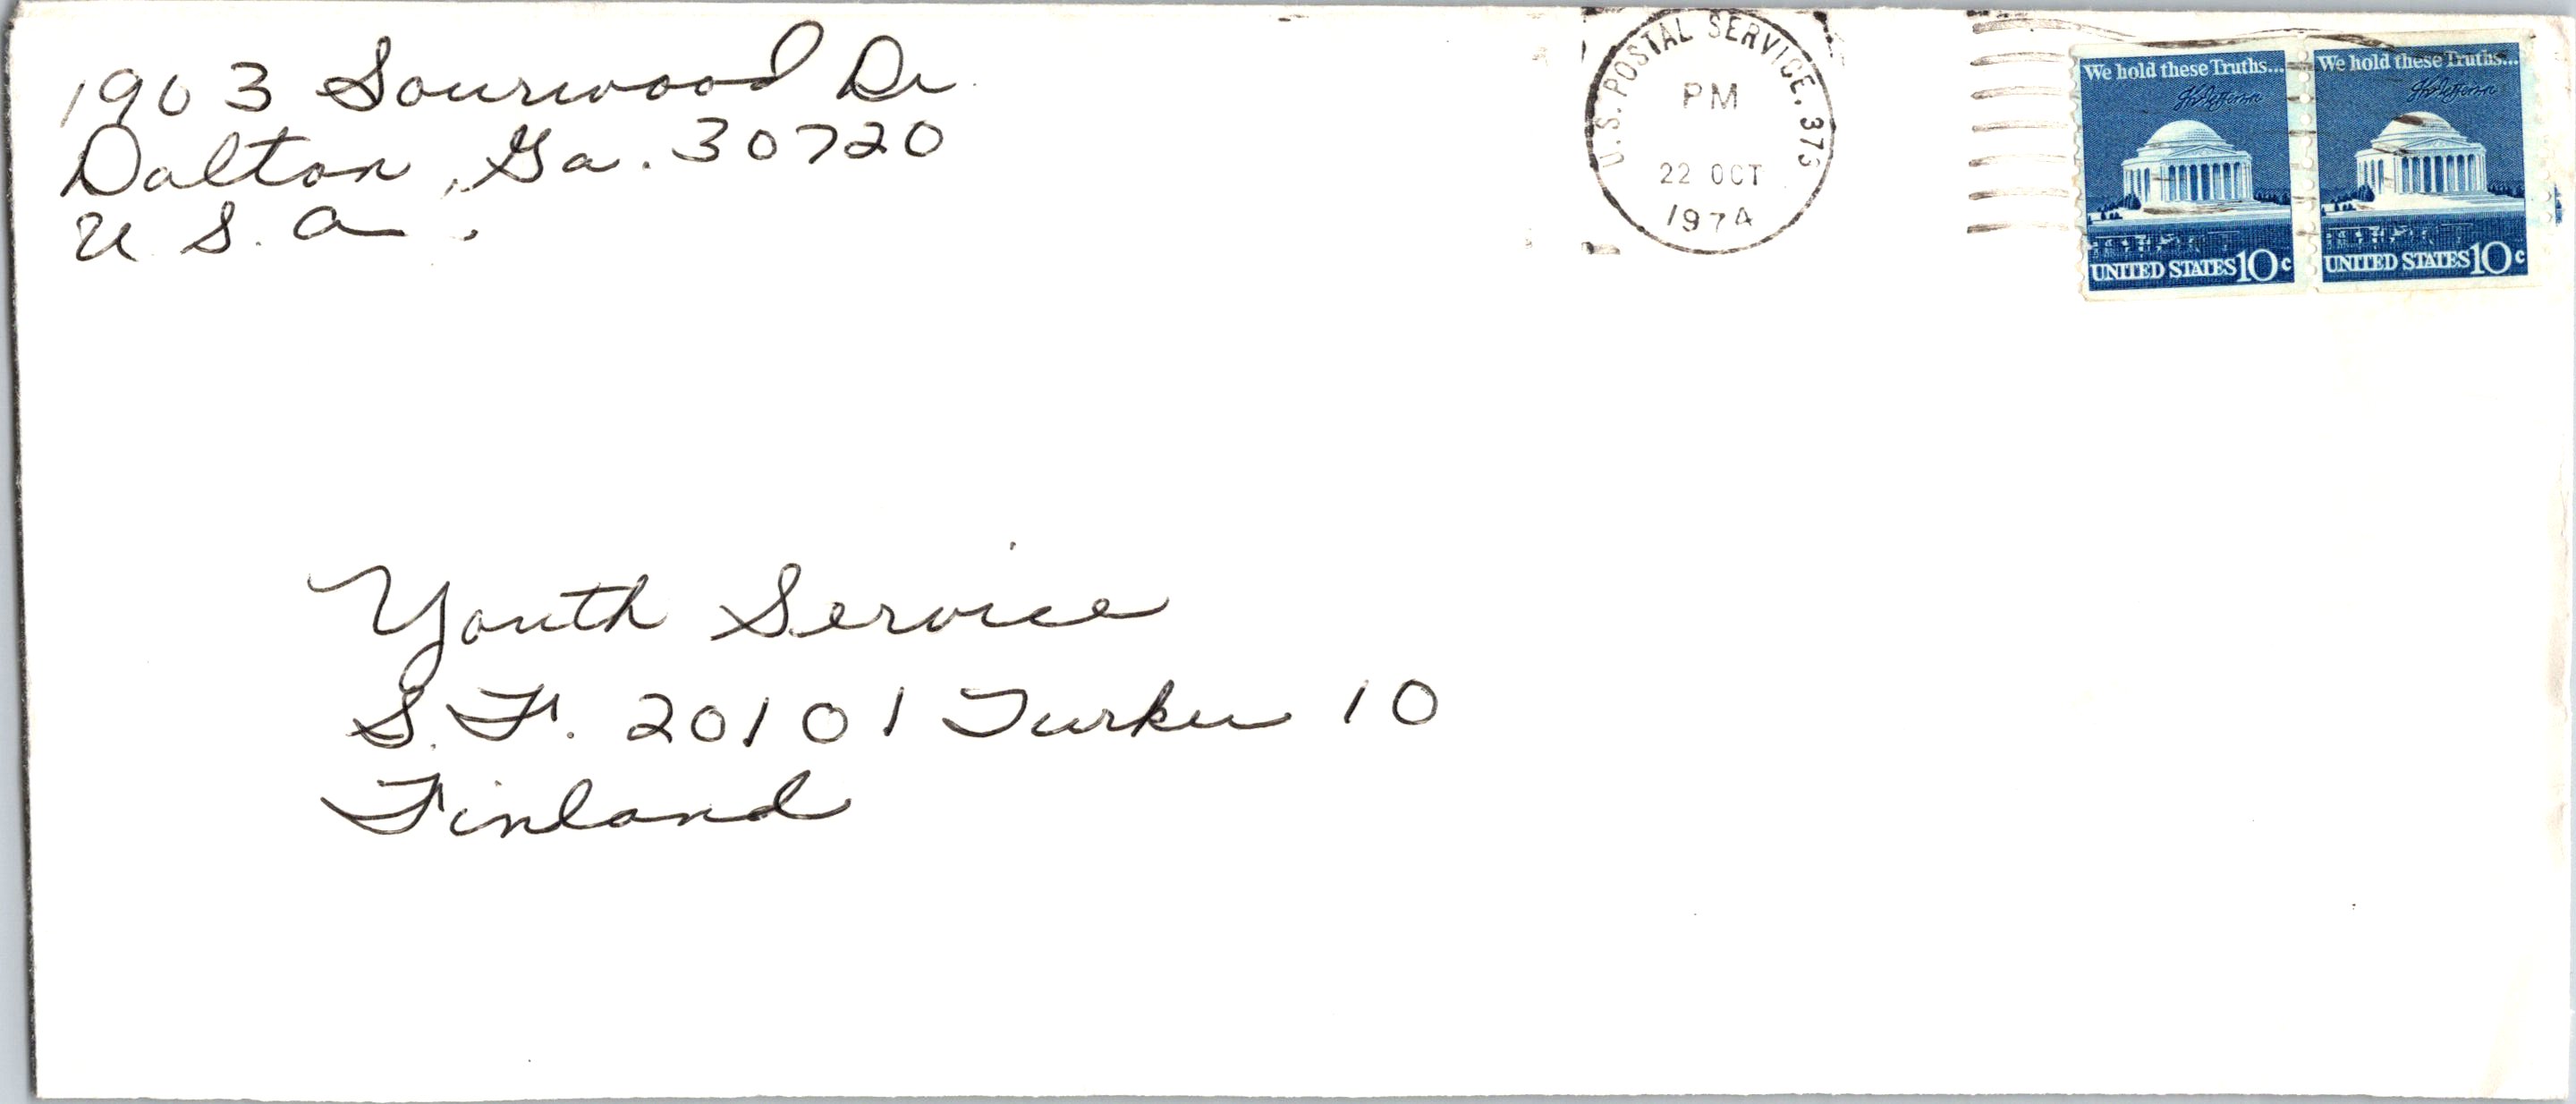 1903 Sourwood Dr.
Dalton, Ga. 30720
U. S. A.
U.S. POSTAL SERVICE, 373
PM
22 OCT
1974
We hold these Truths...
Th Jefferson
UNITED STATES 10c
We hold these Truths...
Th Jefferson
UNITED STATES 10c
Youth Service
S. F. 20101 Turku 10
Finland